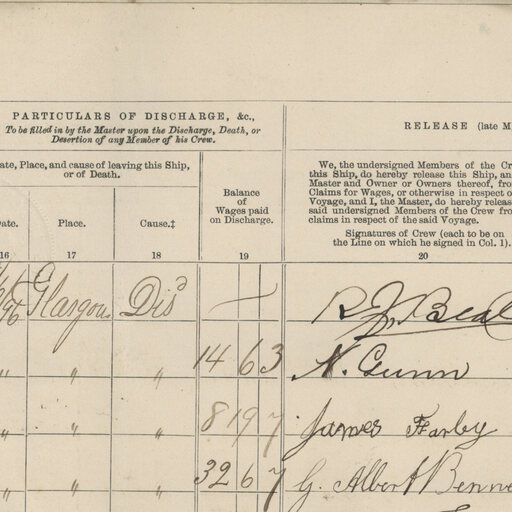 PARTICULARS OF DISCHARGE, &c.,
To be filled in by the Master upon the Discharge, Death, or
Desertion of any Member of his Crew.
RELEASE (late M
ate, Place, and cause of leaving this Ship,
or of Death.
Date.
Place.
Cause.‡
Balance
of
Wages paid
on Discharge.
We, the undersigned Members of the Cre
this Ship, do hereby release this Ship, an
Master and Owner or Owners thereof, fro
Claims for Wages, or otherwise in respect o
Voyage, and I, the Master, do hereby releas
said undersigned Members of the Crew from
claims in respect of the said Voyage.
Signatures of Crew (each to be on
the Line on which he signed in Col. 1).
16 17 18 19 20
96 Glasgow Disd — R J Beal
" " " 14 6 3 N. Gunn
" " " 8 19 7 James Farby
" " " 32 6 7 G. Albert Benne